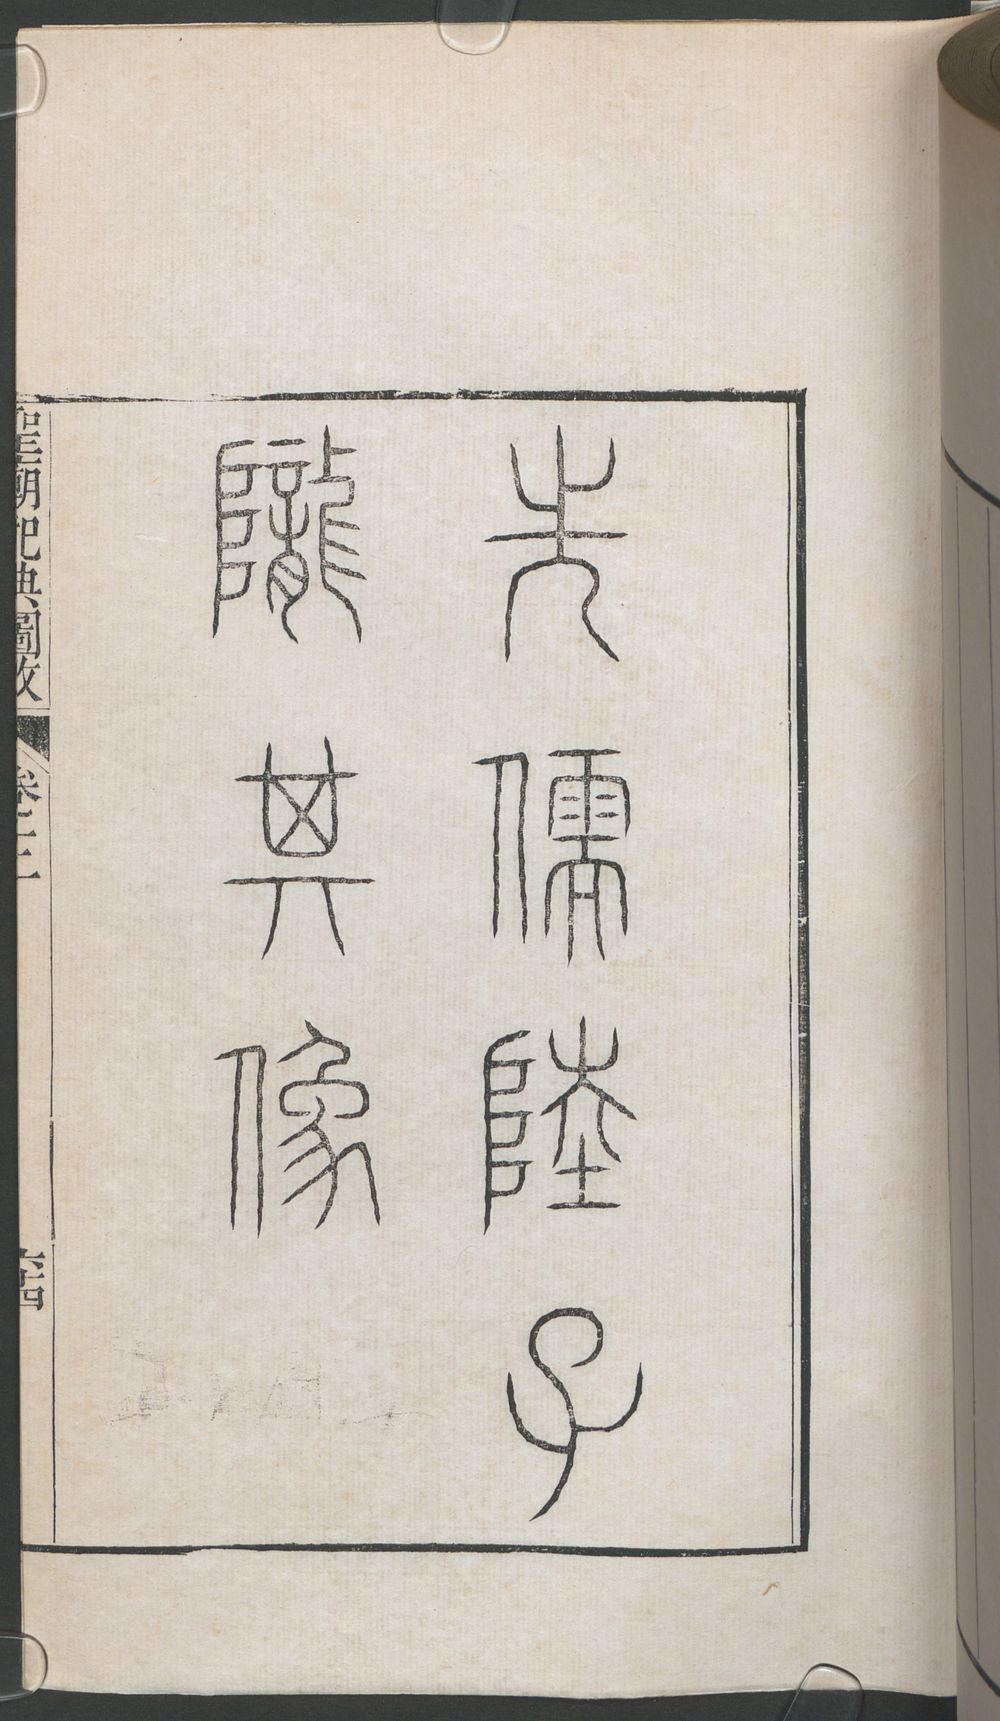 先儒陸子
隴其像
聖朝祀典圖攷
卷三
六十四